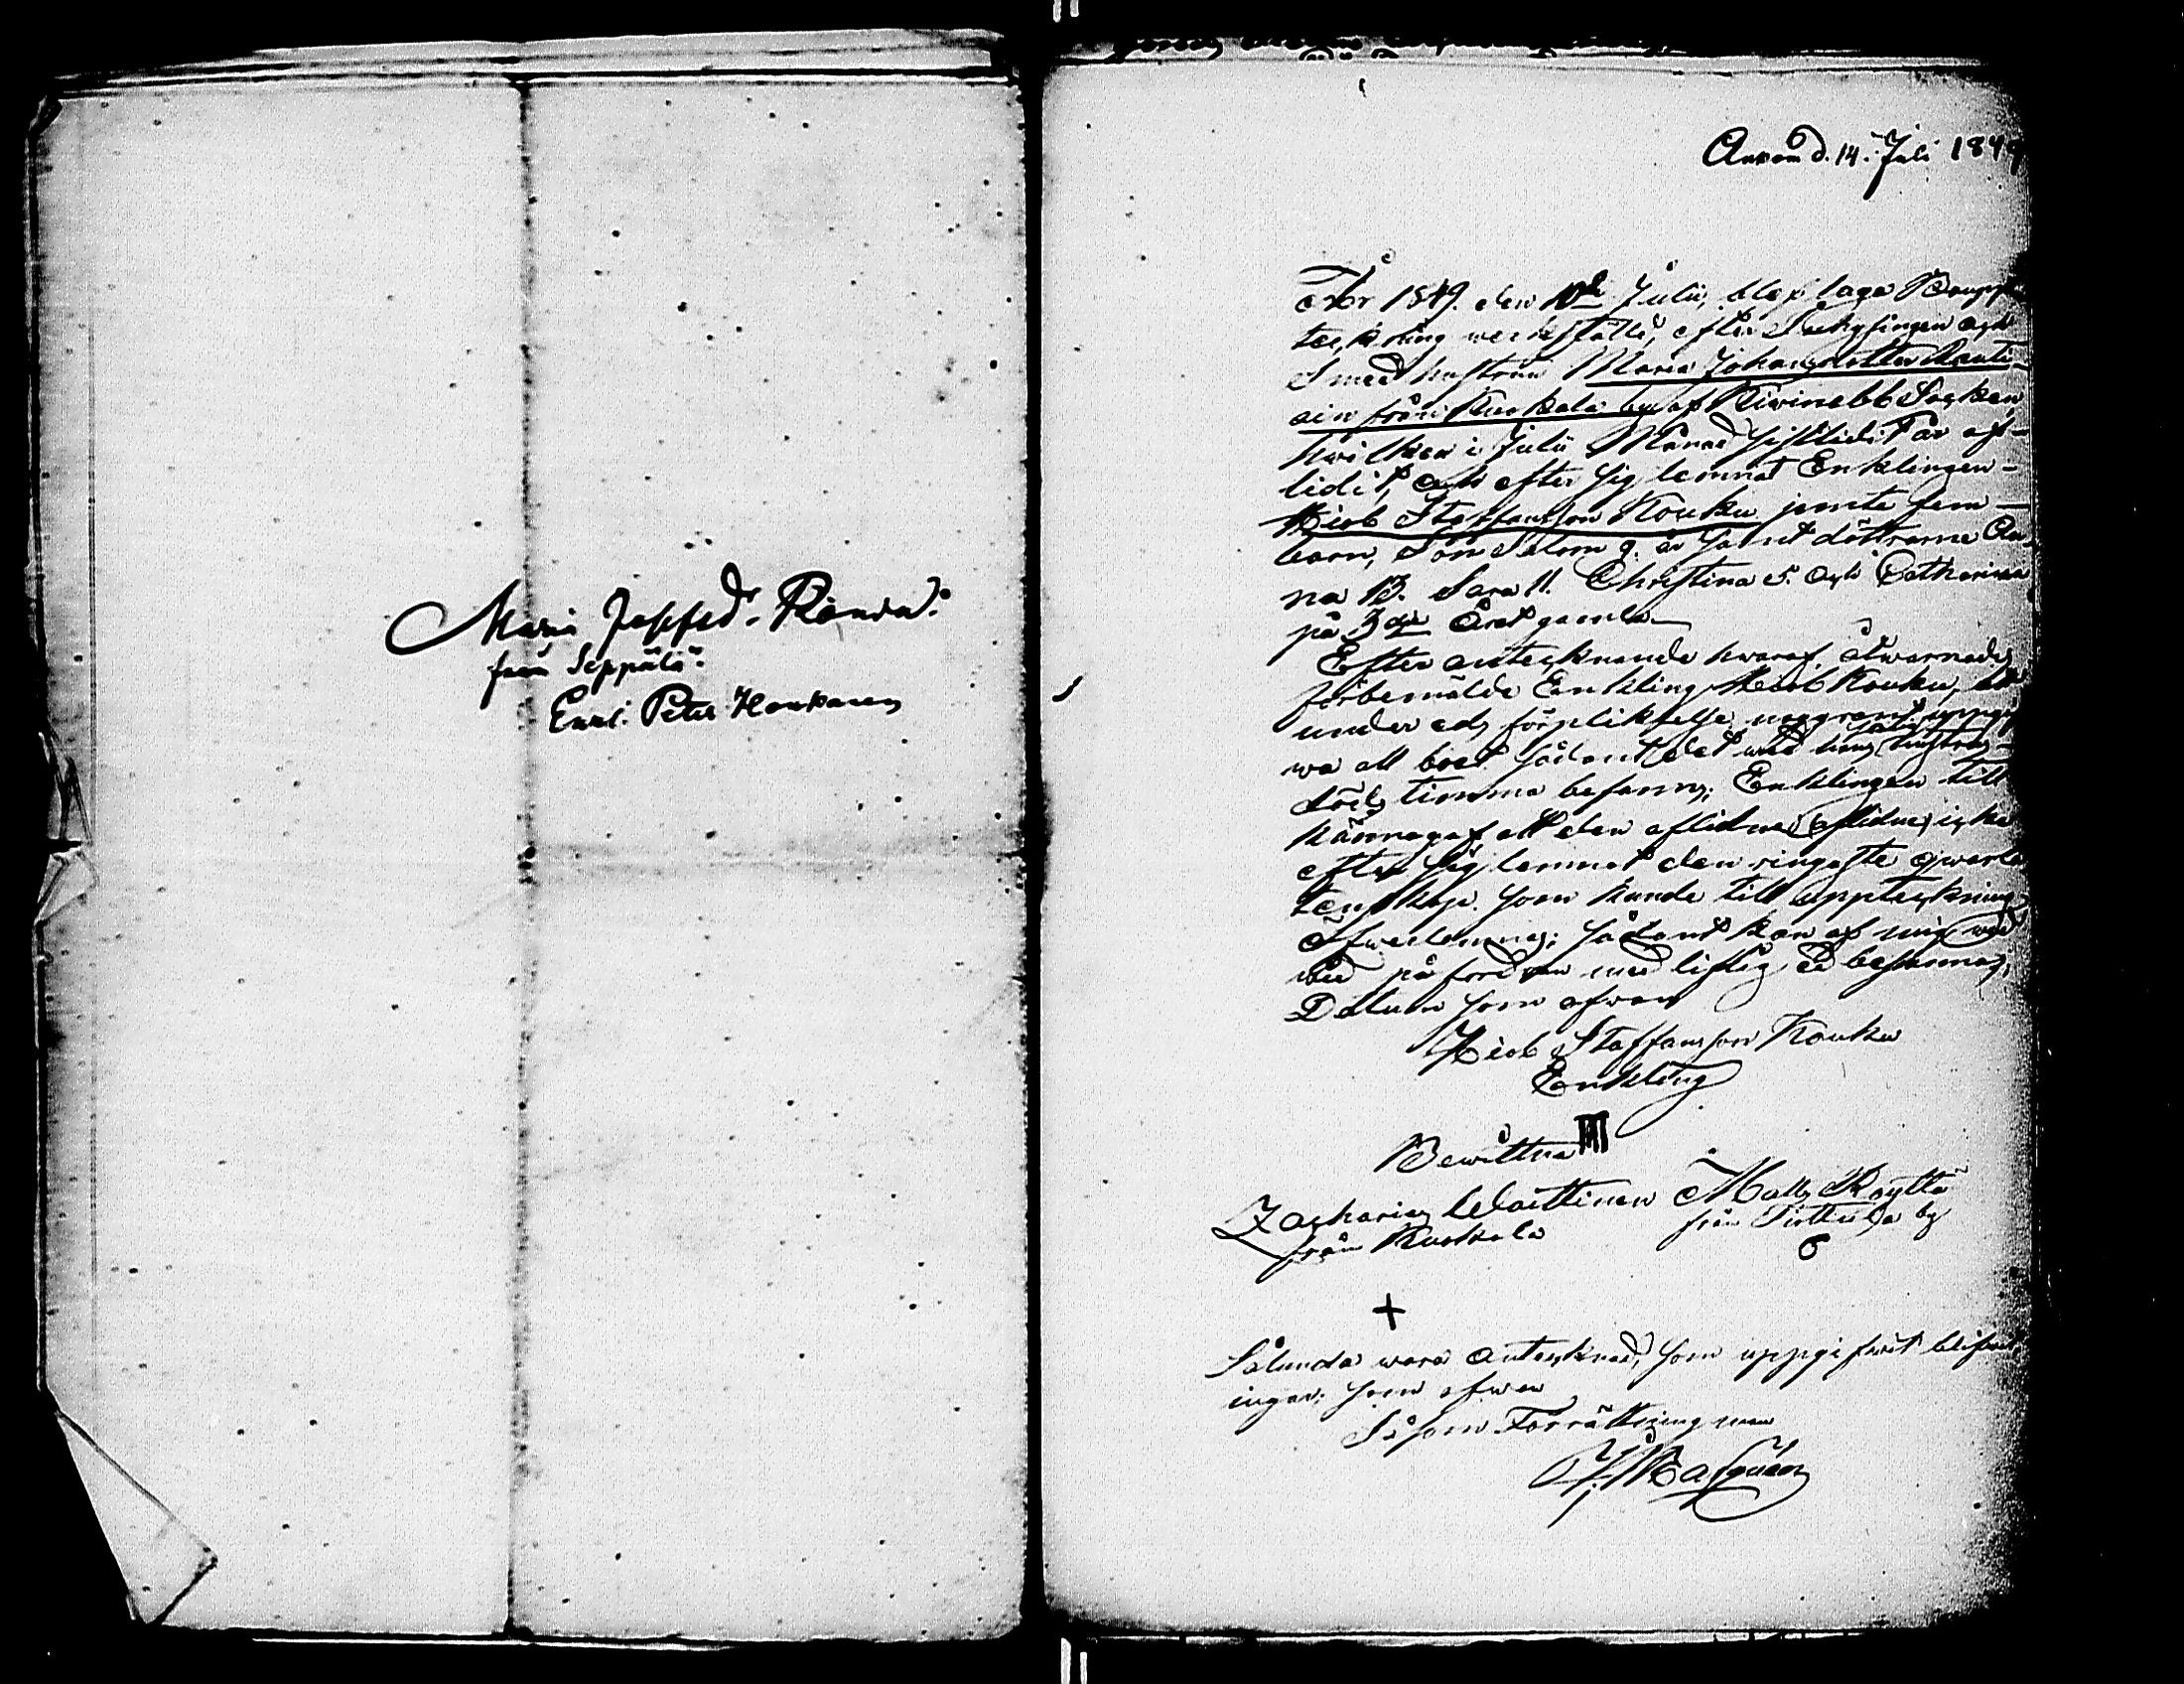 Maria Josefsd:r Rönkä
från Seppälä
Enkl. Peter Honkanen
Ankom d. 14. Juli 1849
År 1849. den 10de Julii, blef laga Boupp-
teckning werkstäld, efter Inhysingen och
Smed hustrun Maria Johansdotter Rauti-
ain från Kuokala by af Kivinebb Socken,
hvilken i Julii Månad sistlidit år af-
lidit, och efter sig lemnat Enklingen
Hiob Staffansson Kouku jemte fem
barn, Son Salom 9. år samt döttrarne An-
na 13. Sara 11. Christina 5. och Catharina
på 3dje Året gamla
Efter antecknande hvaraf, åtwarnades
förbemälde Enkling Hiob Kouku, at
under eds förpliktelse noggrant uppgif-
wa all boet sådant det wid hans hustrus
döds timma befanns; Enklingen till
kännagaf att den aflidne icke
efter sig lemnat den ringaste qwarlå-
tenskap, som kunde till uppteckning
öfwerlemnas; sådant kan af mig
wid påfordran med liflig Ed besannas;
Datum som ofwan
Hiob Staffansson Kouku
Enkling
Bewittna
Zacharias Waittinen Matts Röyttä
från Kuokala från Tirttula by
Sålunda wara antecknad, som uppgifwit blifwit
som ofwan
Såsom Förrättningsman